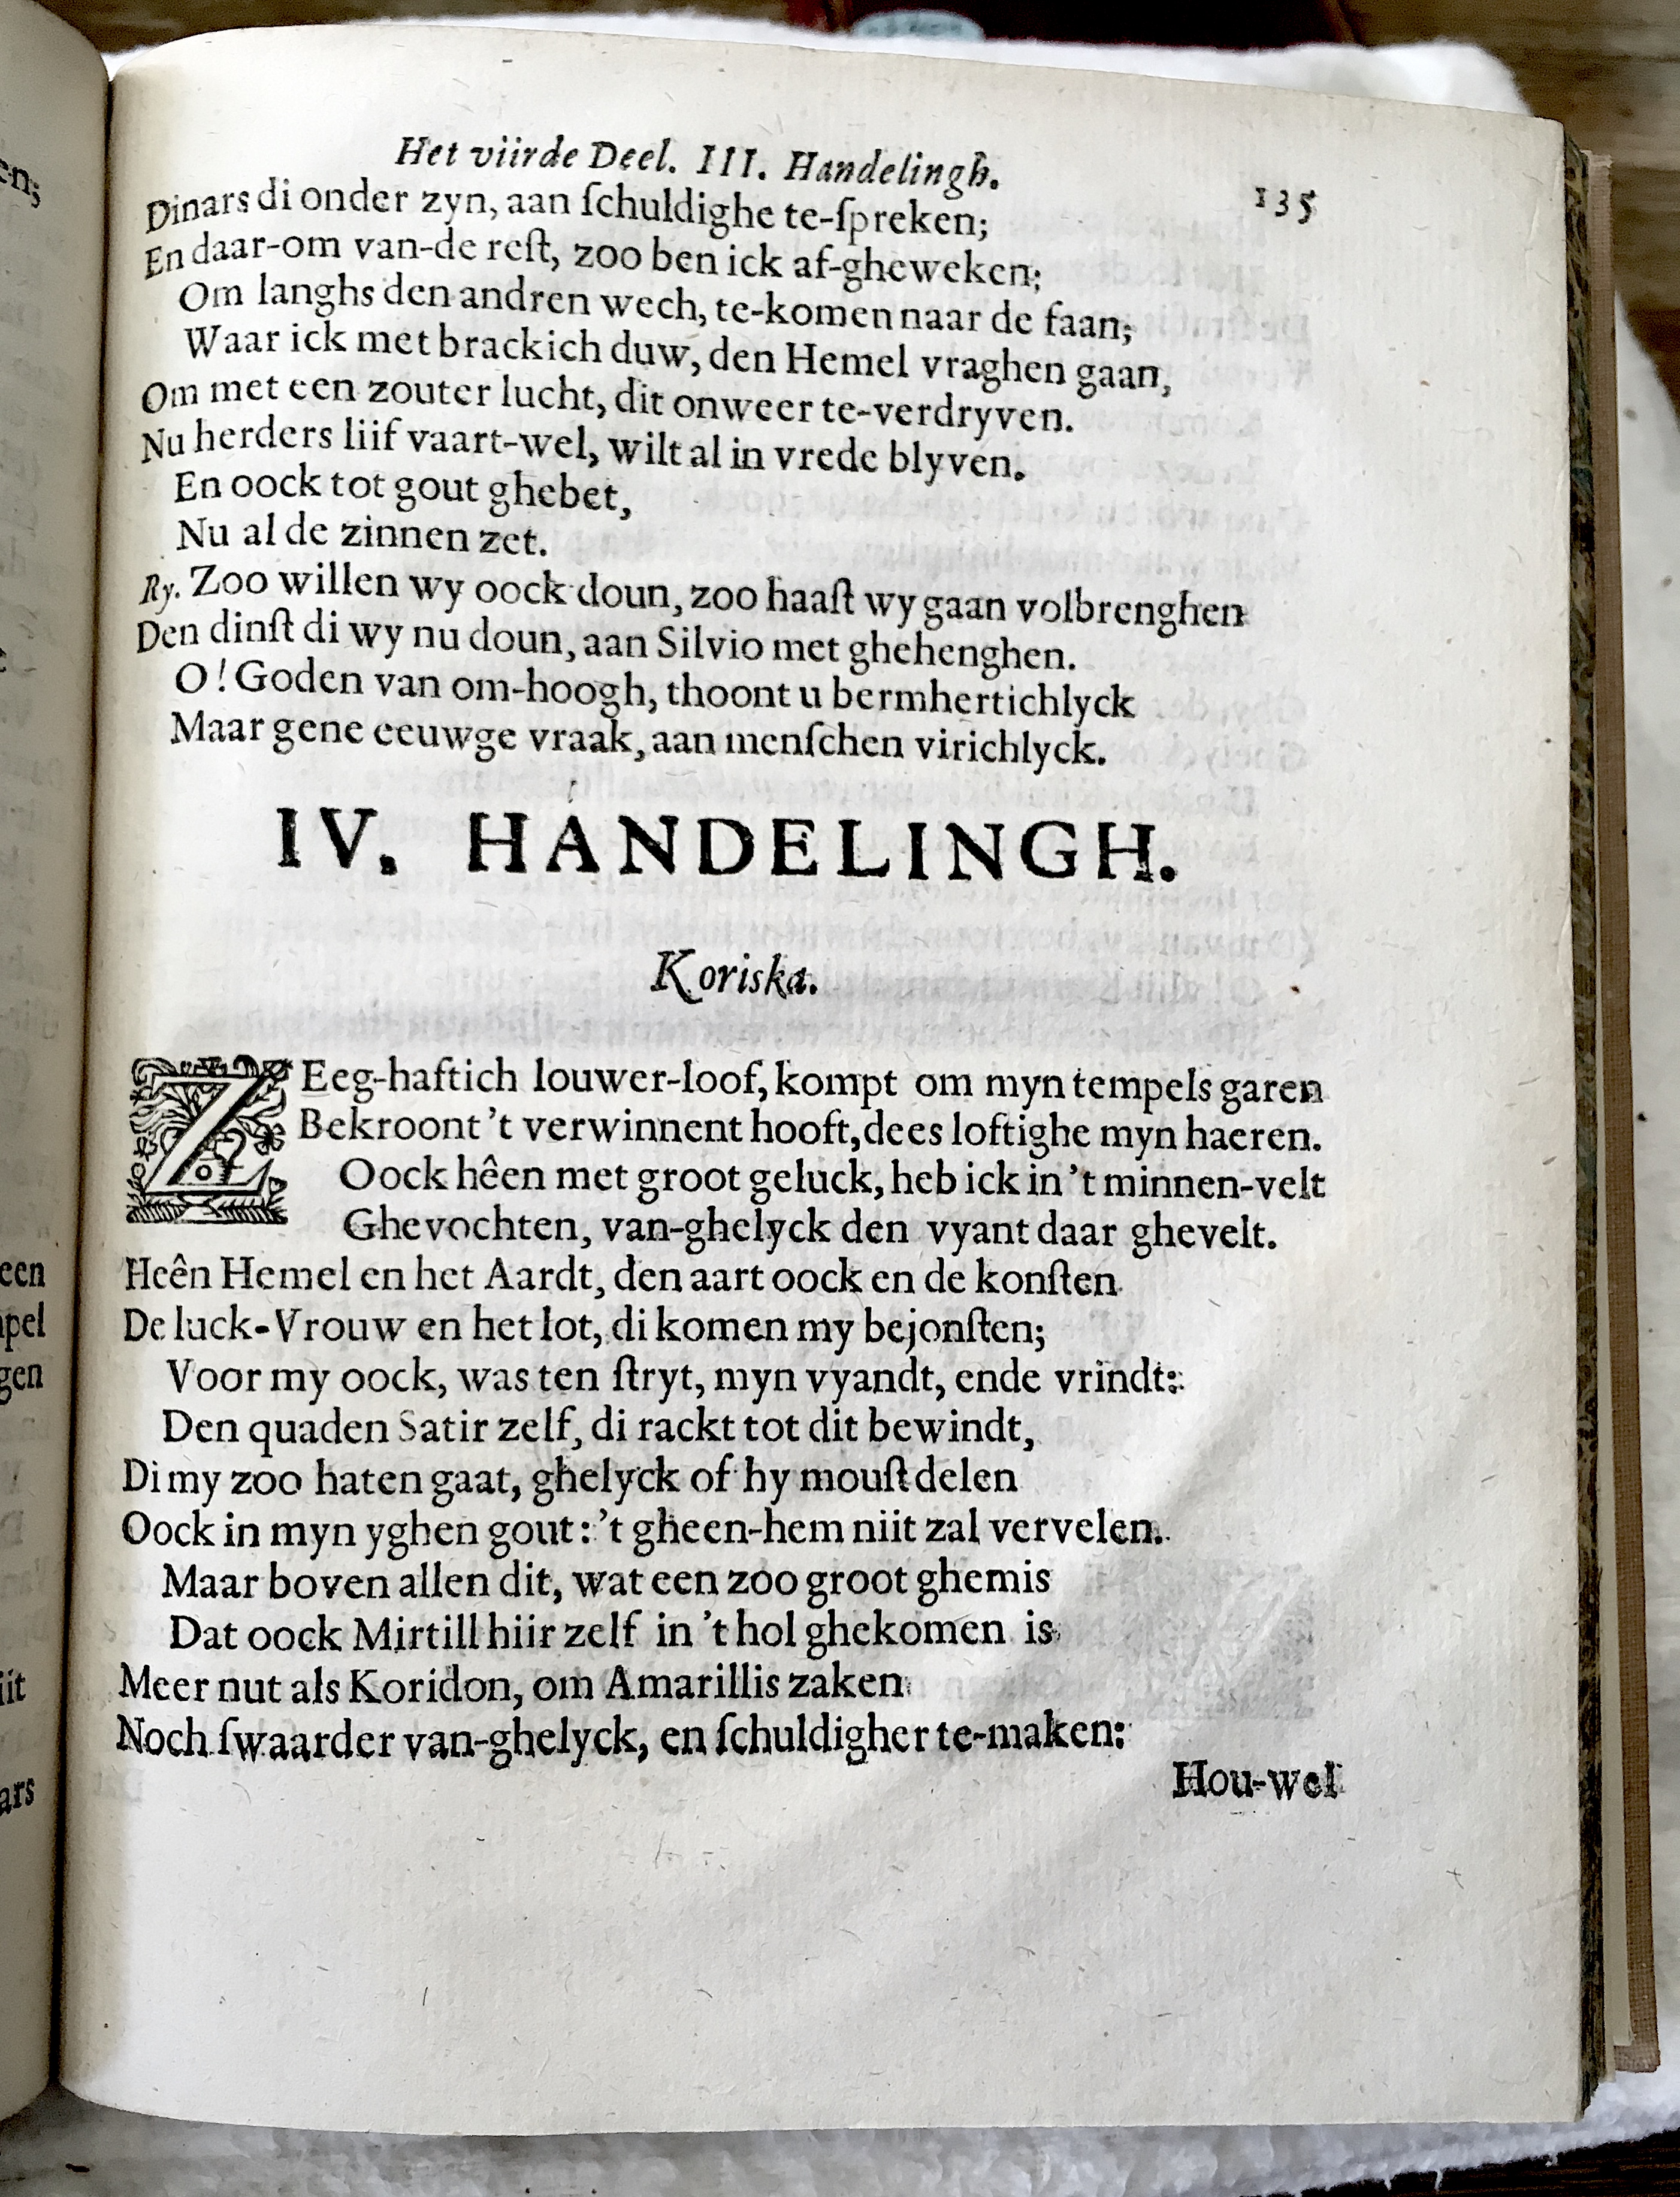 Het viirde Deel. III. Handelingh. 135
Dinars di onder zyn, aan ſchuldighe te-ſpreken;
En daar-om van-de reſt, zoo ben ick af-gheweken;
Om langhs den andren wech, te-komen naar de faan;
Waar ick met brackich duw, den Hemel vraghen gaan,
Om met een zouter lucht, dit onweer te-verdryven.
Nu herders liif vaart-wel, wilt al in vrede blyven.
En oock tot gout ghebet,
Nu al de zinnen zet.
Ry. Zoo willen wy oock doun, zoo haaſt wy gaan volbrenghen
Den dinſt di wy nu doun, aan Silvio met ghehenghen.
O! Goden van om-hoogh, thoont u bermhertichlyck
Maar gene eeuwge vraak, aan menſchen virichlyck.
IV. HANDELINGH.
Koriska.
ZEeg-haftich louwer-loof, kompt om myn tempels garen
Bekroont 't verwinnent hooft, dees loftighe myn haeren.
Oock hêen met groot geluck, heb ick in 't minnen-velt
Ghevochten, van-ghelyck den vyant daar ghevelt.
Heên Hemel en het Aardt, den aart oock en de konſten
De luck-Vrouw en het lot, di komen my bejonſten;
Voor my oock, was ten ſtryt, myn vyandt, ende vrindt:
Den quaden Satir zelf, di rackt tot dit bewindt,
Di my zoo haten gaat, ghelyck of hy mouſt delen
Oock in myn yghen gout: 't gheen-hem niit zal vervelen.
Maar boven allen dit, wat een zoo groot ghemis
Dat oock Mirtill hiir zelf in 't hol ghekomen is
Meer nut als Koridon, om Amarillis zaken
Noch ſwaarder van-ghelyck, en ſchuldigher te-maken:
Hou-wel
een
pel
gen
iit
ars